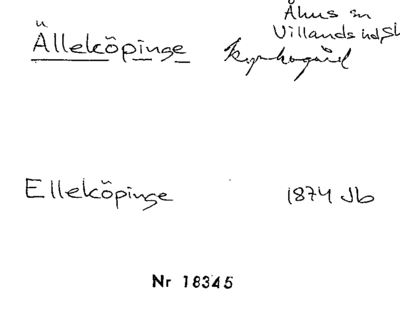 Åhus sn
Villands hd, Sk
Älleköpinge kyrkogård
Elleköpinge 1874 Jb
Nr 18345